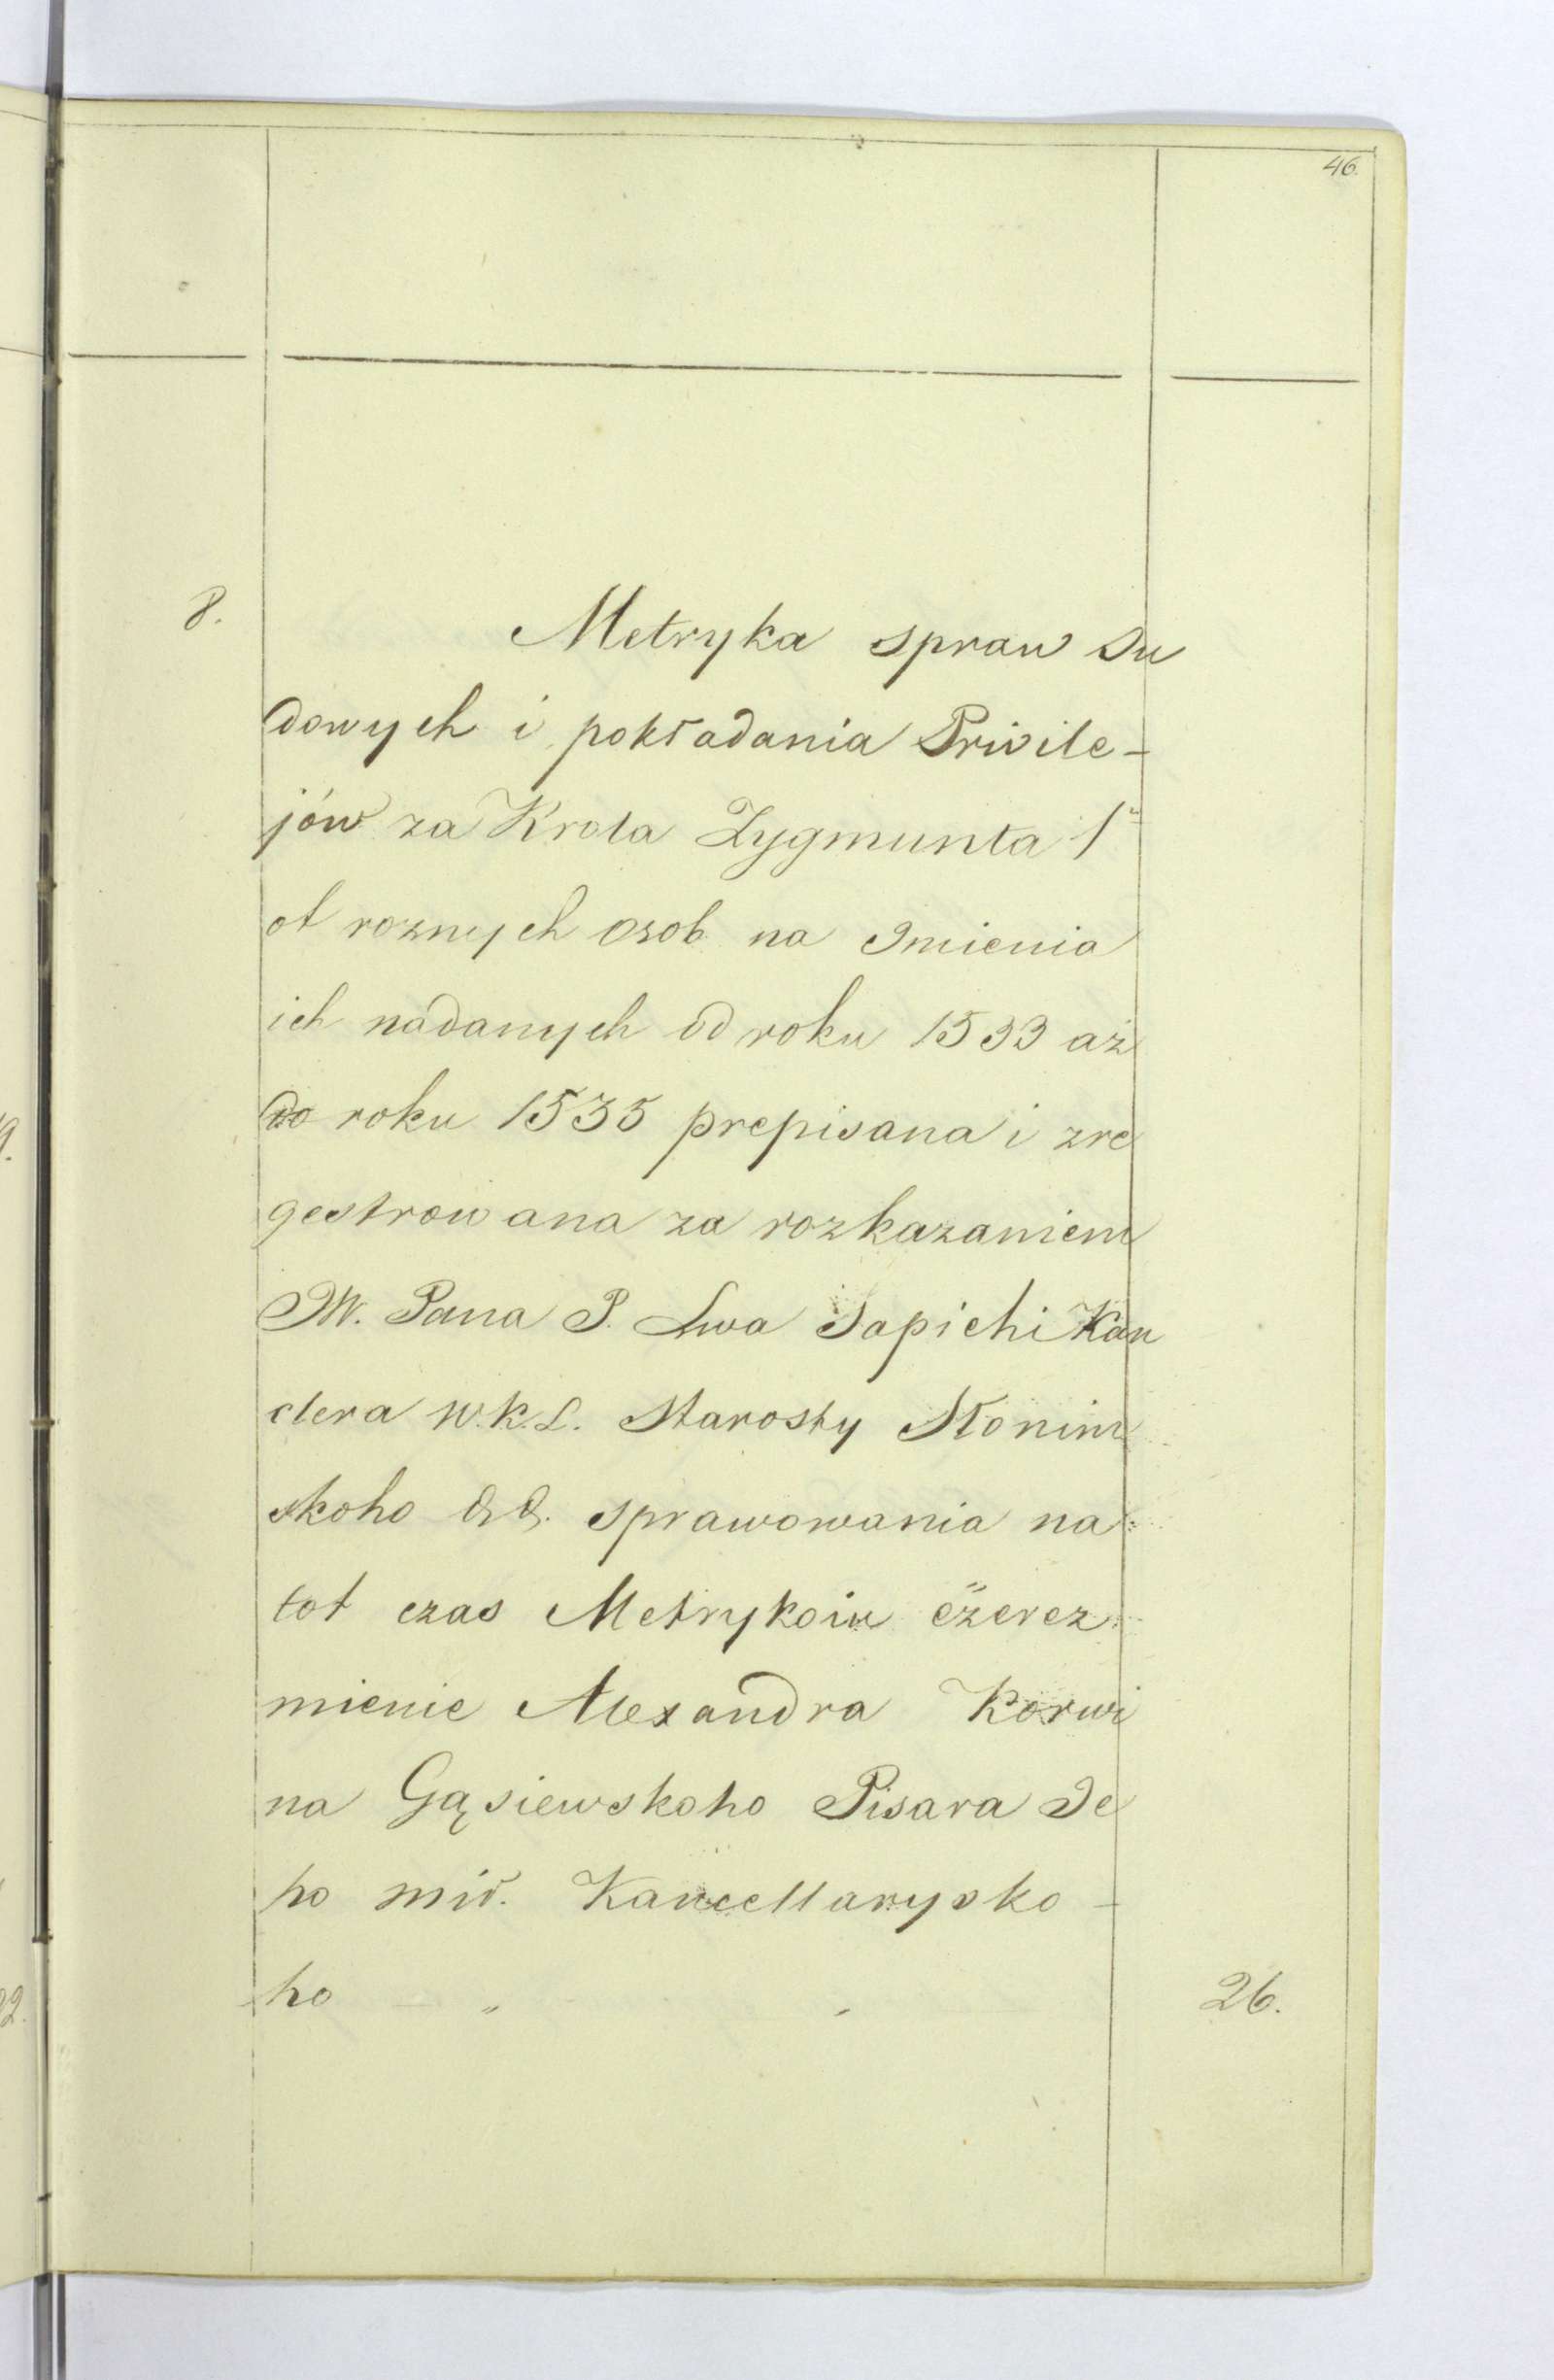 46.
8.
Metryka spraw Su
dowych i pokładania Privile-
jów za Krola Zygmunta 1º
ot roznych osob na Imienia
ich nadanych od roku 1533 aż
do roku 1535 prepisana i zre
gestrowana za rozkazaniem
W. Pana P. Lwa Sapiehi Kan
clera W.K.L. Starosty Słonim
skoho &&. sprawowania na
tot czas Metrykoiu czerez
mienie Alexandra Korwi
na Gąsiewskoho Pisara Je
ho mił. Kancellarysko-
ho 26.